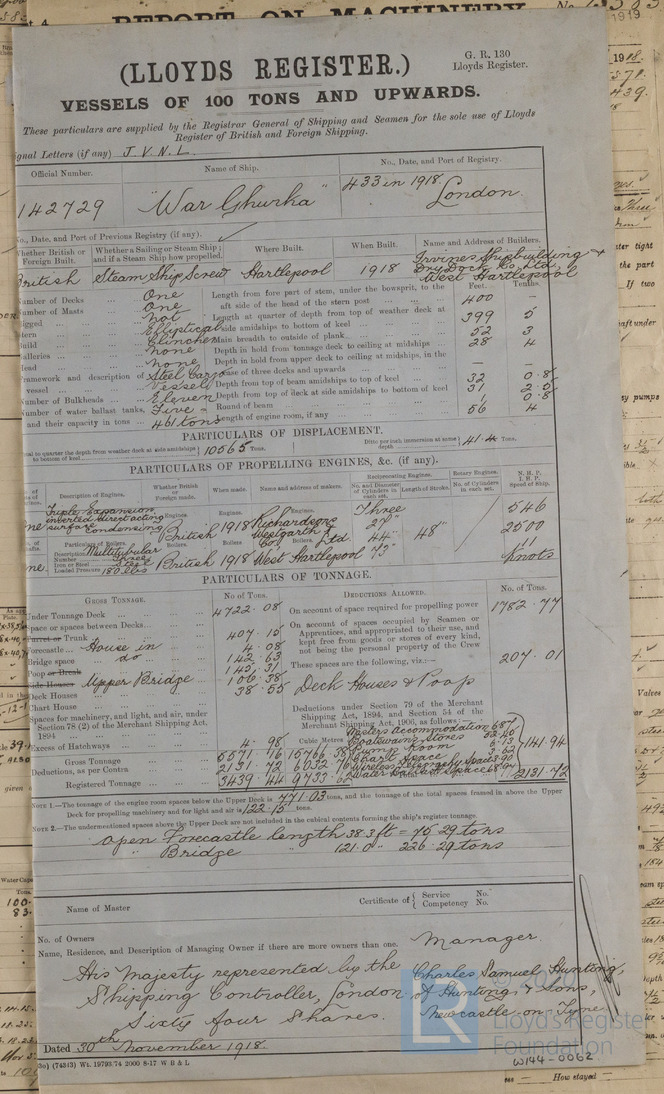 REPORT ON MACHINERY
(LLOYDS REGISTER.)
G. R. 130
Lloyds Register.
VESSELS OF 100 TONS AND UPWARDS.
These particulars are supplied by the Registrar General of Shipping and Seamen for the sole use of Lloyds
Register of British and Foreign Shipping.
ignal Letters (if any) J. V. N. L.
Official Number. Name of Ship. No., Date, and Port of Registry.
142729 "War Ghurka" 433 in 1918. London.
No., Date, and Port of Previous Registry (if any).
Whether British or Foreign Built. Whether a Sailing or Steam Ship; and if a Steam Ship how propelled. Where Built. When Built. Name and Address of Builders.
British Steam Ship Screw Hartlepool 1918 Irvine's Shipbuilding & Dry Dock Co. Ltd, West Hartlepool
Feet. Tenths.
Number of Decks One Length from fore part of stem, under the bowsprit, to the aft side of the head of the stern post 400 —
Number of Masts One
Rigged Not Length at quarter of depth from top of weather deck at side amidships to bottom of keel 399 5
Stern Elliptical
Build Clincher Main breadth to outside of plank 52 3
Galleries None Depth in hold from tonnage deck to ceiling at midships 28 4
Head None Depth in hold from upper deck to ceiling at midships, in the case of three decks and upwards —
Framework and description of vessel Steel Cargo Vessel Depth from top of beam amidships to top of keel 32 0.8
Number of Bulkheads Eleven Depth from top of deck at side amidships to bottom of keel 31 2.5
Number of water ballast tanks, and their capacity in tons Five - 461 tons Round of beam 1 0.8
Length of engine room, if any 56 4
PARTICULARS OF DISPLACEMENT.
al to quarter the depth from weather deck at side amidships to bottom of keel 10565 Tons. Ditto per inch immersion at same depth 41.4 Tons.
PARTICULARS OF PROPELLING ENGINES, &c. (if any).
Description of Engines. Whether British or Foreign made. When made. Name and address of makers. Reciprocating Engines. Rotary Engines. N. H. P. I. H. P. Speed of Ship.
No. and Diameter of Cylinders in each set. Length of Stroke. No. of Cylinders in each set.
Engines. Engines. Engines.
Triple Expansion inverted direct acting surface condensing British 1918 Richardsons Westgarth & Co Ltd Three 27" 44" 73" 48" 546 2500 11 Knots
Particulars of Boilers. Boilers. Boilers. Boilers.
Description Multitubular
Number Three
Iron or Steel Steel
Loaded Pressure 180 lbs British 1918 West Hartlepool
PARTICULARS OF TONNAGE.
GROSS TONNAGE. No of Tons. DEDUCTIONS ALLOWED. No. of Tons.
Under Tonnage Deck 4722.08 On account of space required for propelling power 1782.77
Space or spaces between Decks
Turret or Trunk 407.15 On account of spaces occupied by Seamen or Apprentices, and appropriated to their use, and kept free from goods or stores of every kind, not being the personal property of the Crew 207.01
Forecastle House in 4.08
Bridge space do 142.63
Poop or Break 145.31 These spaces are the following, viz.:—
Side Houses Upper Bridge 106.38
Deck Houses 38.55 Deck Houses & Poop
Chart House
Spaces for machinery, and light, and air, under Section 78 (2) of the Merchant Shipping Act, 1894 Deductions under Section 79 of the Merchant Shipping Act, 1894, and Section 54 of the Merchant Shipping Act, 1906, as follows:
Masters Accommodation 6.87
Boatswains Stores
Pump Room
Chart Space 3.62
Wireless Telegraphy Space
Water Ballast Space
141.94
Excess of Hatchways 4.98 Cubic Metres
Gross Tonnage 5571.16 15766.38
Deductions, as per Contra 2131.72 6032.76 2131.72
Registered Tonnage 3439.44 9733.62
NOTE 1.—The tonnage of the engine room spaces below the Upper Deck is 771.03 tons, and the tonnage of the total spaces framed in above the Upper
Deck for propelling machinery and for light and air is 122.15 tons.
NOTE 2.—The undermentioned spaces above the Upper Deck are not included in the cubical contents forming the ship's register tonnage.
Open Forecastle length 38.3 ft = 75.29 tons
" Bridge " 121.0 " 226.29 tons
Name of Master Certificate of { Service No. Competency No.
No. of Owners
Name, Residence, and Description of Managing Owner if there are more owners than one. Manager.
His Majesty represented by the Charles Samuel Hunting,
Shipping Controller, London of Hunting & Sons,
Sixty four Shares. Newcastle on Tyne
Dated 30th November 1918.
30) (74343) Wt. 19793/74 2000 8-17 W B & L
W144-0062
LR
Lloyd's Register
Foundation
How stayed